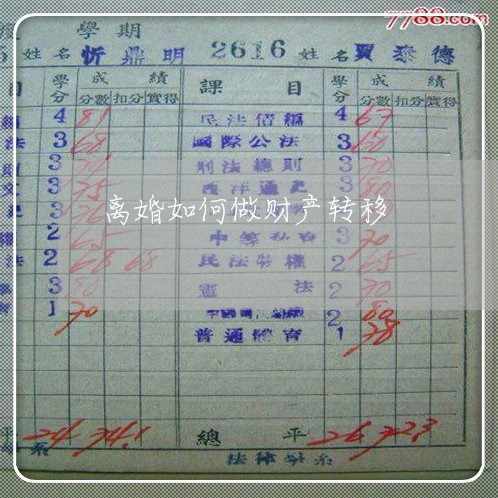 7788.com
學期
姓名 忻鼎明 2616 姓名 賈泰德
目 學分 成績 課目 學分 成績
分數 扣分 實得 分數 扣分 實得
4 81 民法債編 4 67
法 3 68 國際公法 3 60
3 刑法總則 3 70
3 75 西洋通史 3 80
離婚如何做財產轉移
2 65 3 70
法 2 68 68 民法物權 2 65
3 80 憲法 2 70
1 70 2 80
普通體育 1 78
平 24 74.1 總平 26 72.3
系 法律學系